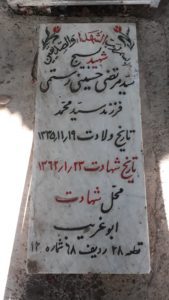 بسم رب الشهداء والصدیقین
شهید بسیج
سید مرتضی حسینی رستمی
فرزند سید محمد
تاریخ ولادت ۱۳۴۵/۱۱/۱۹
تاریخ شهادت ۱۳۶۲/۱/۲۳
محل شهادت
ابوغریب
قطعه ۲۸ ردیف ۶۸ شماره ۱۲